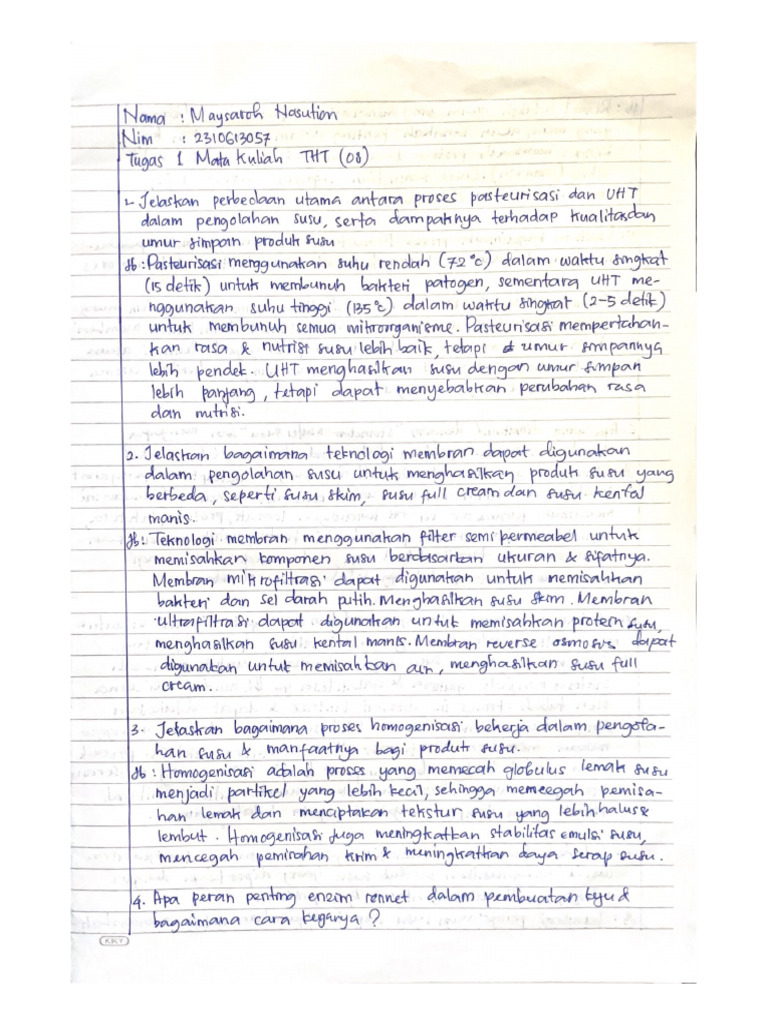 Nama : Maysaroh Nasution
Nim : 2310613057
Tugas 1 Mata Kuliah THT (08)
1. Jelaskan perbedaan utama antara proses pasteurisasi dan UHT
dalam pengolahan susu, serta dampaknya terhadap kualitas dan
umur simpan produk susu
Jb : Pasteurisasi menggunakan suhu rendah (72°c) dalam waktu singkat
(15 detik) untuk membunuh bakteri patogen, sementara UHT me-
nggunakan suhu tinggi (135°c) dalam waktu singkat (2-5 detik)
untuk membunuh semua mikroorganisme. Pasteurisasi mempertahan-
kan rasa & nutrisi susu lebih baik, tetapi umur simpannya
lebih pendek. UHT menghasilkan susu dengan umur simpan
lebih panjang, tetapi dapat menyebabkan perubahan rasa
dan nutrisi.
2. Jelaskan bagaimana teknologi membran dapat digunakan
dalam pengolahan susu untuk menghasilkan produk susu yang
berbeda, seperti susu skim, susu full cream dan susu kental
manis.
Jb : Teknologi membran menggunakan filter semi permeabel untuk
memisahkan komponen susu berdasarkan ukuran & sifatnya.
Membran mikrofiltrasi dapat digunakan untuk memisahkan
bakteri dan sel darah putih. Menghasilkan susu skim. Membran
ultrafiltrasi dapat digunakan untuk memisahkan protein susu,
menghasilkan susu kental manis. Membran reverse osmosis dapat
digunakan untuk memisahkan air, menghasilkan susu full
cream.
3. Jelaskan bagaimana proses homogenisasi bekerja dalam pengola-
han susu & manfaatnya bagi produk susu.
Jb : Homogenisasi adalah proses yang memecah globulus lemak susu
menjadi partikel yang lebih kecil, sehingga mencegah pemisa-
han lemak dan menciptakan tekstur susu yang lebih halus &
lembut. Homogenisasi juga meningkatkan stabilitas emulsi susu,
mencegah pemisahan krim & meningkatkan daya serap susu.
4. Apa peran penting enzim rennet dalam pembuatan keju &
bagaimana cara kerjanya ?
KKY